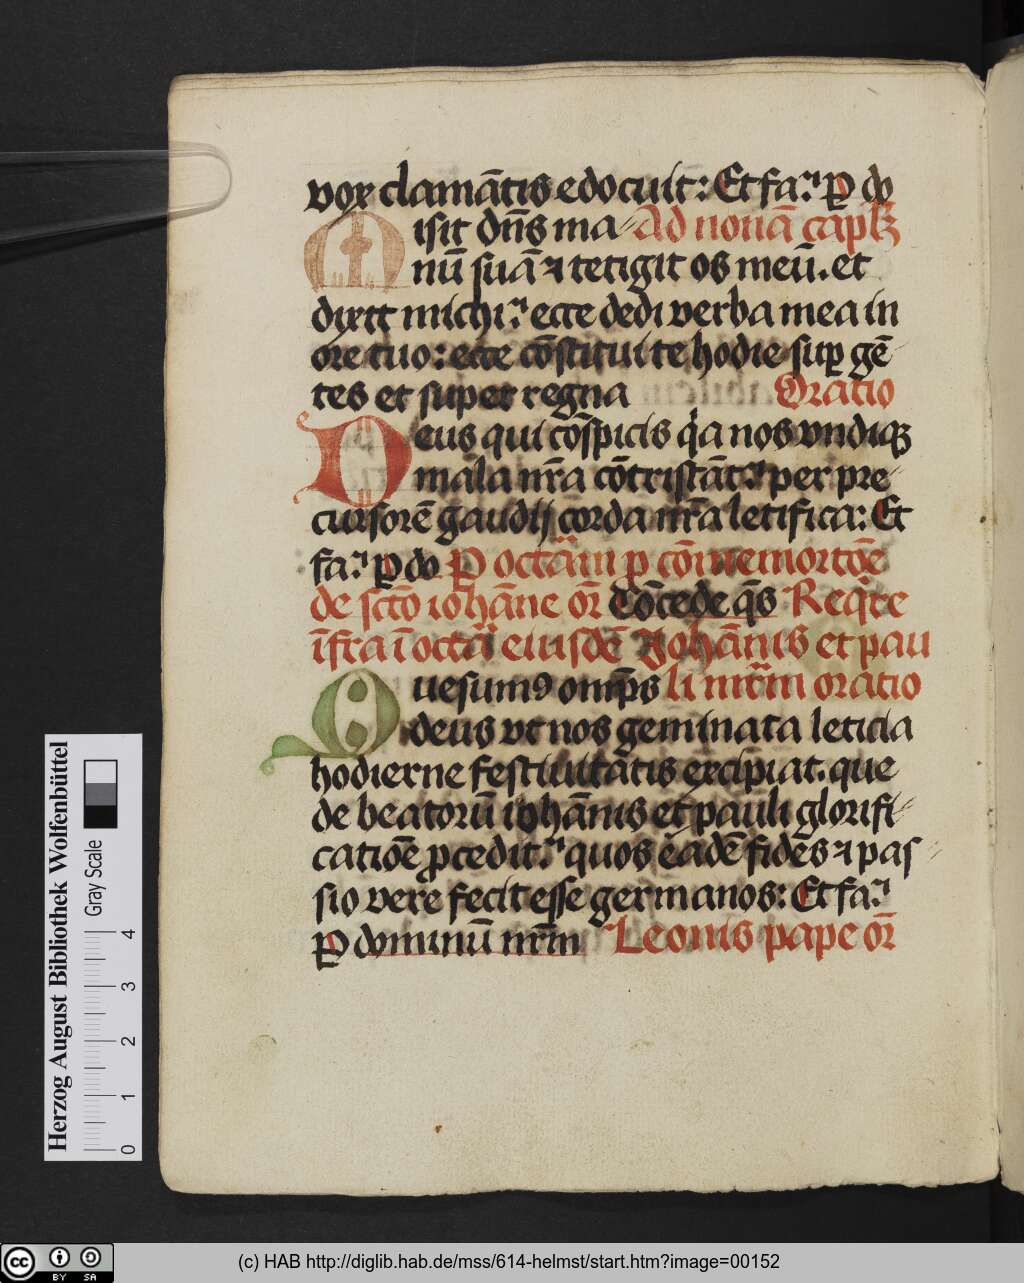 vox clamātis edocuit: Et fa.ʳ ꝑ do
Misit dn̄s ma⸗ Ad nonā capłꝫ
nū suā ⁊ tetigit os meū. et
dixit michi.ʳ ecce dedi verba mea in
ore tuo: ecce cōstitui te hodie suꝑ gē⸗
tes et super regna Oratio
Deus qui cōspicis qͥa nos vndiqꝫ
mala nr̄a cōtristāt.ʳ per pre⸗
cursorē gaudij corda nr̄a letifica: Et
fa.ʳ ꝑ do P octāʳm ꝓ cōmemorōe
de sctō iohāne or̄ Cōcede q̄s Reqͥre
īfra ī octāʳ eiusdē Johānis et pau
Quesumꝰ omp̄s li mr̄m oratio
deus vt nos geminata leticia
hodierne festiuitatis excipiat. que
de beatorū iohānis et pauli glorifi⸗
catiōe ꝓcedit.ʳ quos eadē fides ⁊ pas⸗
sio vere fecit esse germanos: Et fa.ʳ
P dominū nr̄m Leonis pape or̄
Herzog August Bibliothek Wolfenbüttel
Gray Scale
0 1 2 3 4
cc BY SA
(c) HAB http://diglib.hab.de/mss/614-helmst/start.htm?image=00152